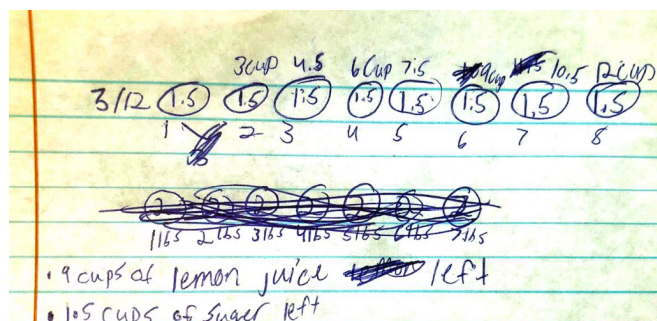 3cup 4.5 6cup 7.5 9cup 10.5 12cup
3/12 1.5 1.5 1.5 1.5 1.5 1.5 1.5 1.5
1 2 3 4 5 6 7 8
1lbs 2lbs 3lbs 4lbs 5lbs 6lbs 7lbs
• 9 cups of lemon juice left
• 1.5 cups of sugar left